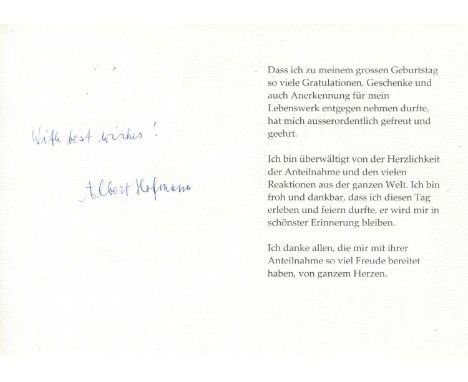 With best wishes!
Albert Hofmann
Dass ich zu meinem grossen Geburtstag
so viele Gratulationen, Geschenke und
auch Anerkennung für mein
Lebenswerk entgegen nehmen durfte,
hat mich ausserordentlich gefreut und
geehrt.
Ich bin überwältigt von der Herzlichkeit
der Anteilnahme und den vielen
Reaktionen aus der ganzen Welt. Ich bin
froh und dankbar, dass ich diesen Tag
erleben und feiern durfte, er wird mir in
schönster Erinnerung bleiben.
Ich danke allen, die mir mit ihrer
Anteilnahme so viel Freude bereitet
haben, von ganzem Herzen.